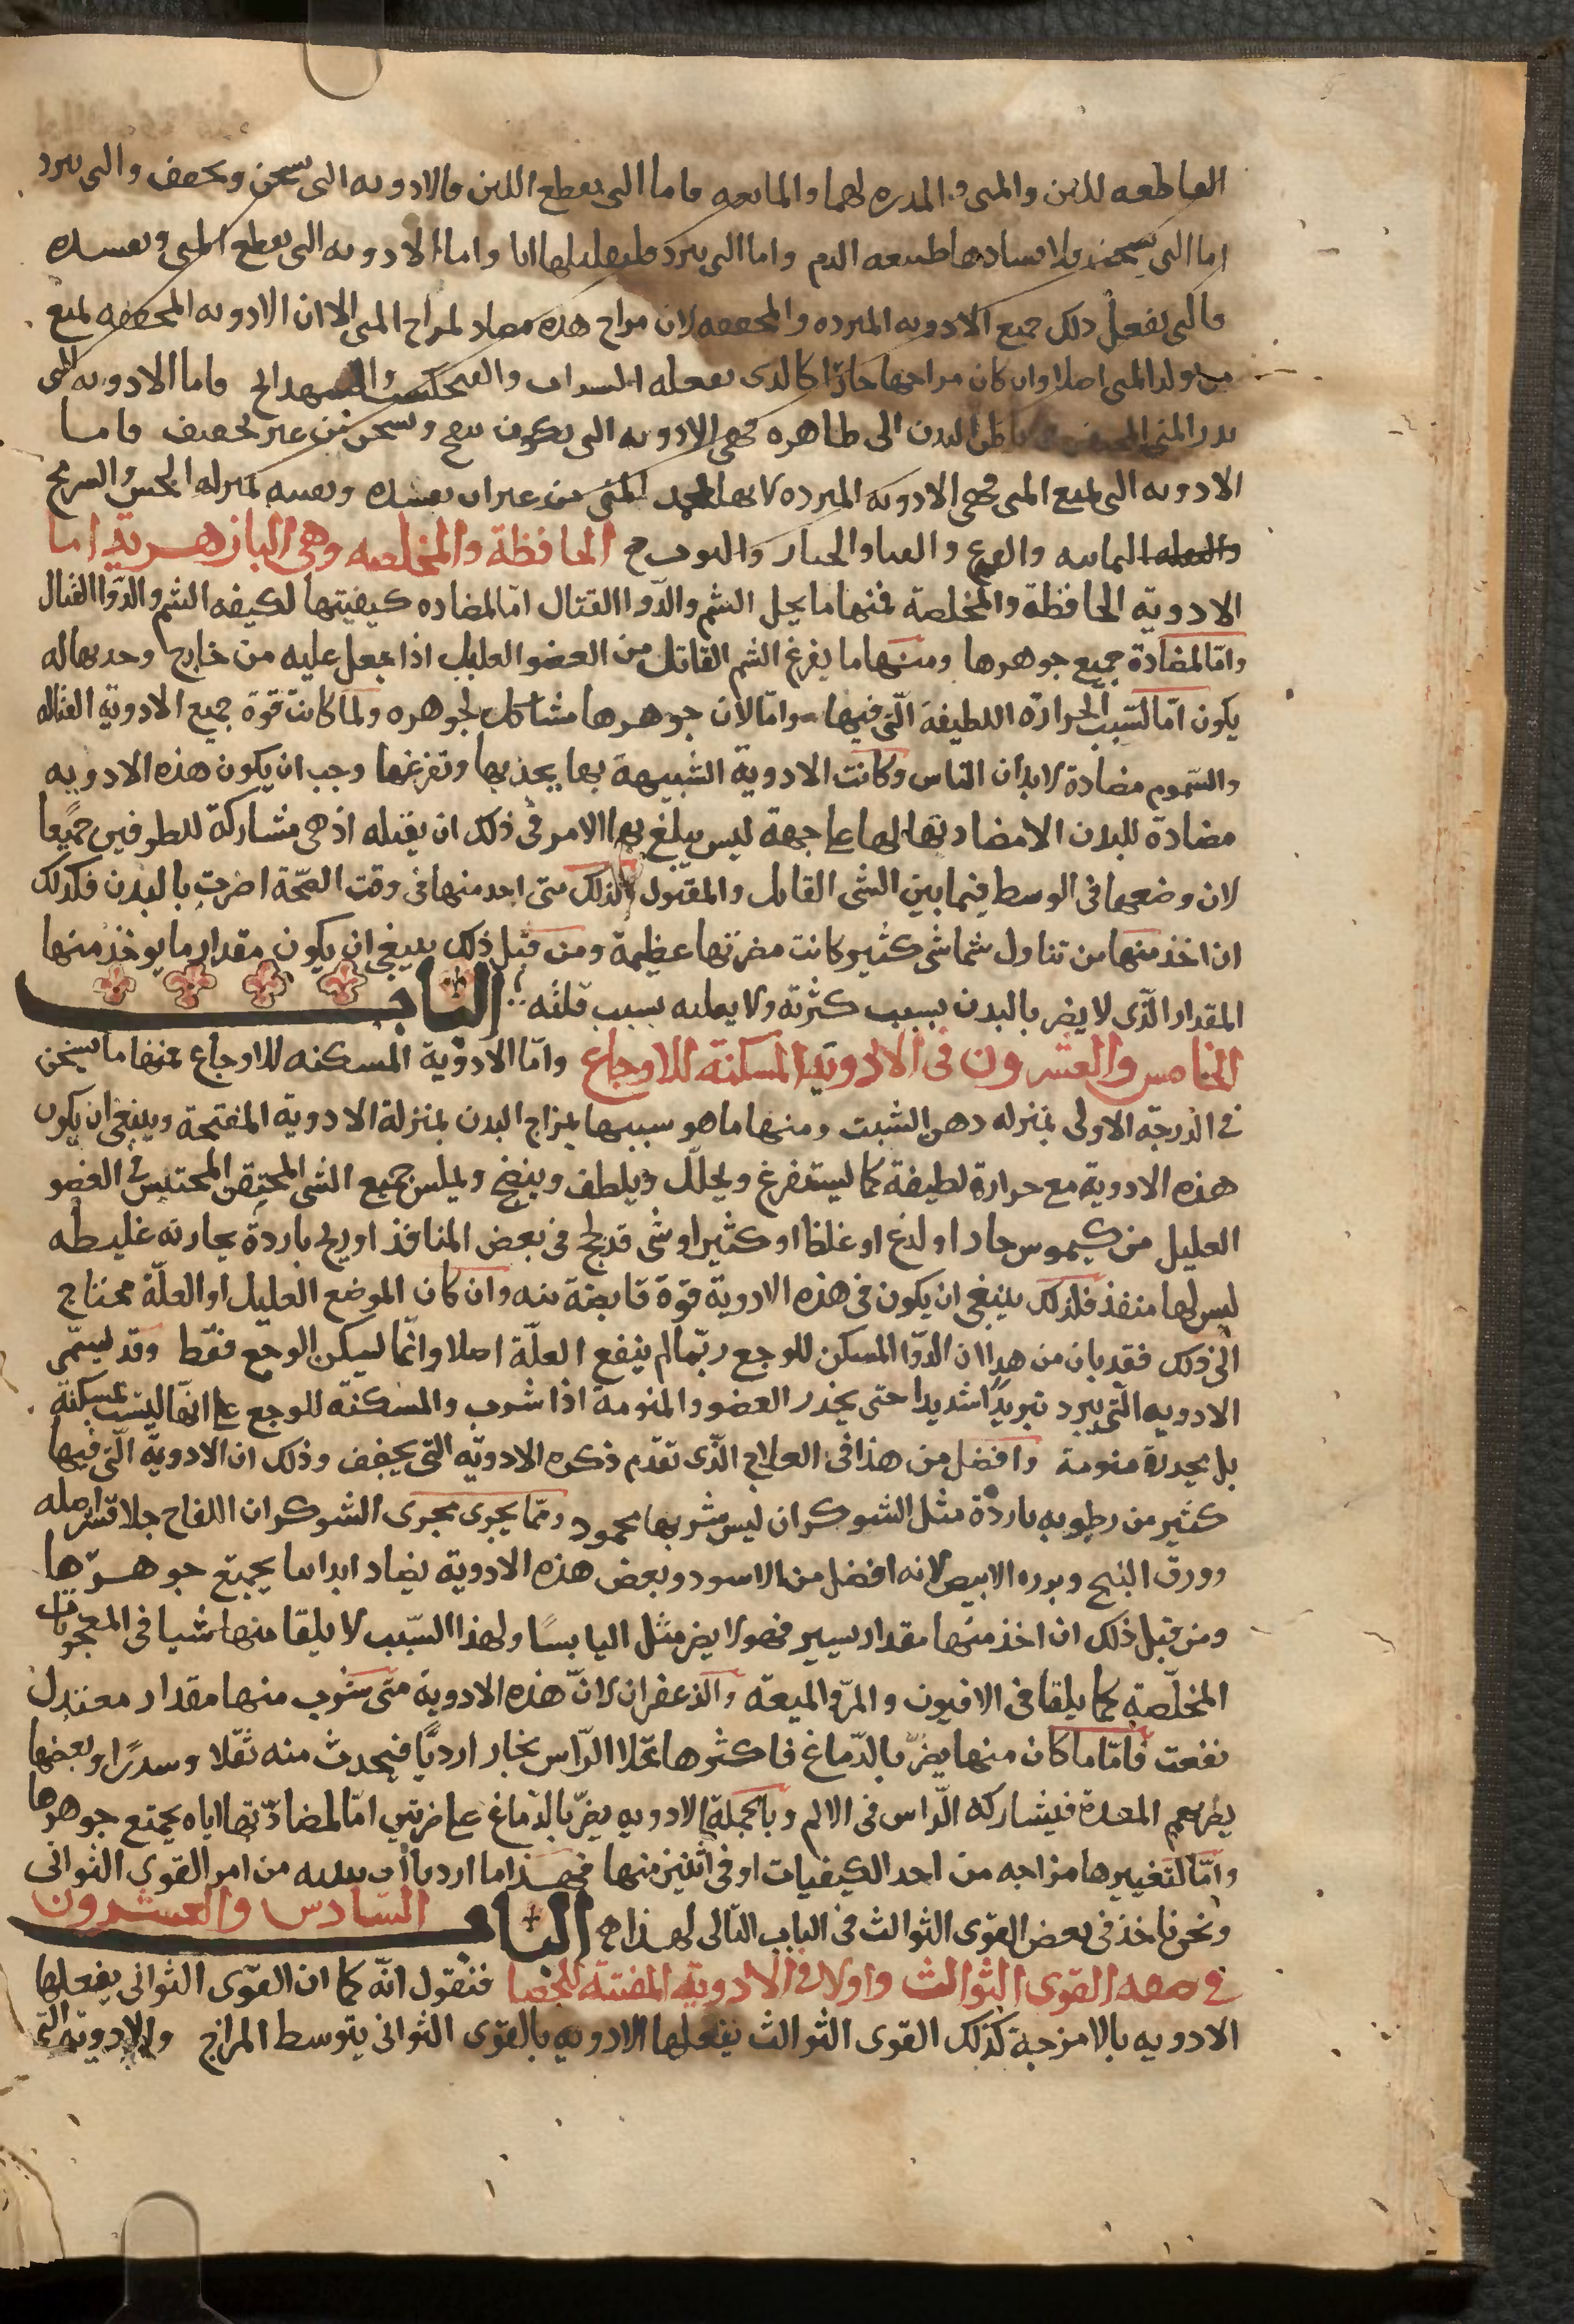 القاطعه للبن والمنى و المدره لهما والمانعه فاما التى تقطع اللبن فالادويه التى تسخن وتجفف والتى تبرد
اما التى تسخن فلافسادها طبيعه الدم واما التى تبرد فلتقليلها ايا واما الادويه التى تقطع المنى وتفسده
فالتى تفعل ذلك جميع الادويه المبرده والمجففه لان مزاج هذه مضاد لمزاج المنى الا ان الادويه المجففه تمنع
من تولد المنى اصلا وان كان مزاجها حارا كالذى يفعله السداب والفنجنكشت والشهدانج فاما الادويه التى
تدر المنى باطن البدن الى ظاهره فهى الادويه التى تكون تنفخ وتسخن من غير تجفيف فاما
الادويه التى تمنع المنى فهى الادويه المبرده لانها تجمد المنى من غير ان تفسده وتفنيه بمنزله الخس والسرمج
والبقله اليمانيه والقرع والقثا والخيار والتوت ⁘ الحافظة والمخلصه وهى البازهرية اما
الادوية الحافظة والمخلصة فمنها ما يحيل السم والدوا القتال اما لمضاده كيفيتها لكيفه السم والدوا القتال
واما لمضادة جميع جوهرها ومنها ما يفرغ السم القاتل من العضو العليل اذا جعل عليه من خارج وجذبها له
يكون اما لسبب الحرارة اللطيفة التى فيها واما لان جوهرها مشاكل لجوهره ولما كانت قوة جميع الادوية القتاله
والسموم مضادة لابدان الناس وكانت الادوية الشبيهة بها يجذبها وتفرغها وجب ان يكون هذه الادويه
مضادة للبدن الا مضادتها لها على جهة ليس يبلغ بها الامر فى ذلك ان يقتله اذ هى مشاركة للطرفين جميعا
لان وضعها فى الوسط فيما بين الشى القاتل والمقتول ولذلك متى اخذ منها فى وقت الصحة اضرت بالبدن فكذلك
ان اخذ منها من تناول سما شى كثير كانت مضرتها عظيمة ومن قبل ذلك ينبغى ان يكون مقدار ما يوخذ منها
المقدار الذى لا يضر بالبدن بسبب كثرته ولا يغلبه بسبب قلته الباب
الخامس والعشرون فى الادوية المسكنة للاوجاع واما الادوية المسكنه للاوجاع فمنها ما يسخن
فى الدرجة الاولى بمنزله دهن الشبت ومنها ما هو سببها بمزاج البدن بمنزلة الادوية المفتحة وينبغى ان يكون
هذه الادوية مع حرارة لطيفة كما يستفرغ ويحلل ويلطف وينضج ويملس جميع الشى المحتقن المحتبس فى العضو
العليل من كيموس حار او لدغ او غلظ او كثير او شى قد لحج فى بعض المنافذ او ريح باردة بخارته غليطه
ليس لها منفذ فلذلك ينبغى ان يكون فى هذه الادوية قوة قابضة بته وان كان الموضع العليل او العلة محتاج
الى ذلك فقد بان من هذا ان الدوا المسكن للوجع ربما لم ينفع العلة اصلا وانما يسكن الوجع فقط وقد يسمى
الادويه التى تبرد تبريدا شديدا حتى يخدر العضو والمنومة اذا شرب والمسكنه للوجع على انها ليست بمسكنة
بل مخدرة منومة وافضل من هذا فى العلاج الذى تقدم ذكره الادويه التى يجفف وذلك ان الادوية التى فيها
كثير من رطوبه باردة مثل الشوكران ليس شربها محمود ومما يجرى مجرى الشوكران اللفاح خلا قشر اصله
وورق البنج وبزره الابيض لانه افضل من الاسود وبعض هذه الادوية يضاد ابداننا بجميع جوهرها
ومن قبل ذلك ان اخذ منها مقدار يسير فهو لا يضر مثل اليا بسا ولهذا السبب لا يلقا منها شيا فى المعجونات
المخلصة كما يلقا فى الافيون والمر والميعة والزعفران لان هذه الادوية متى شرب منها مقدار معتدل
نفعت فاما ما كان منها يضر بالدماغ فاكثرها تملا الراس بخار اردياً فيحدث منه ثقلا وسدرا وبعضها
يضر بفم المعدة فيشاركه الراس فى الالم وبالجملة الادويه يضر بالدماغ على ضربين اما لمضادتها اياه بجميع جوهرها
واما لتغييرها مزاجه من احد الكيفيات او فى اثنين منها فهذا ما اردنا ان نبينه من امر القوى الثوانى
ونحن ناخذ فى بعض القوى الثوالث فى الباب التالى لهذا ⁘ الباب السادس والعشرون
فى صفه القوى الثوالث واولا فى الادوية المفتتة للحصا فنقول انه كما ان القوى الثوانى يفعلها
الادويه بالامزجة كذلك القوى الثوالث يفعلها الادويه بالقوى الثوانى بتوسط المزاج والادوية التى